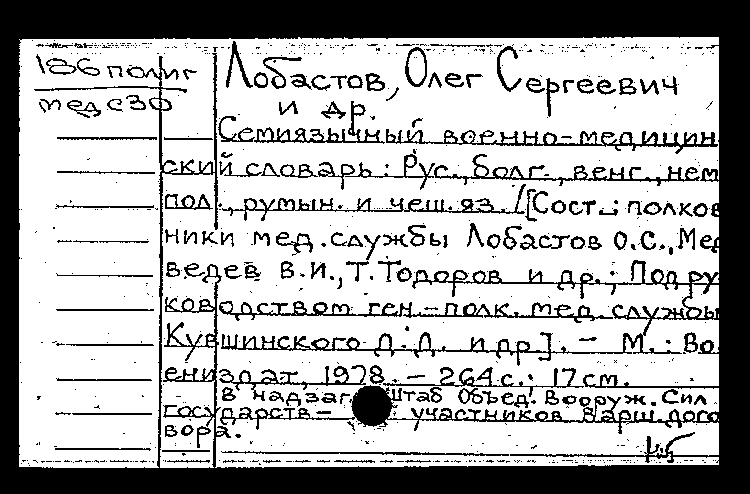 186полиг
медсЗ0
Лобастов, Олег Сергеевич
и др.
Семиязычный военно-медицин
ский словарь: Рус., болг., венг., нем
пол., румын. и чеш. яз. /[Сост.: полков
ники мед. службы Лобастов О.С., Мед
ведев В.И., Т. Тодоров и др.; Под ру
ководством ген.-полк. мед. службы
Кувшинского Д.Д. и др]. - М.: Во
ениздат, 1978. - 264с.; 17см.
В надзаг. Штаб Объед. Вооруж. Сил
государств- участников Варш. дого
вора.